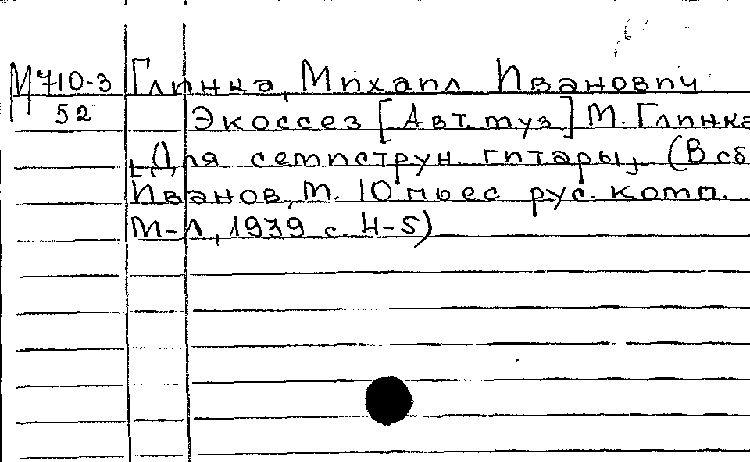 М 710-3 Глинка, Михаил Иванович
52 Экоссез [Авт. муз.] М. Глинка
[Для семиструн. гитары]. (В сб.
Иванов, М. 10 пьес рус. комп.
М-Л, 1939 с. 4-5)